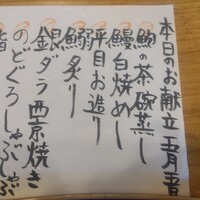 本日のお献立
の茶碗蒸し
鰻白焼めし
平目お造り
炙り
銀ダラ西京焼き
のどぐろしゃぶしゃぶ